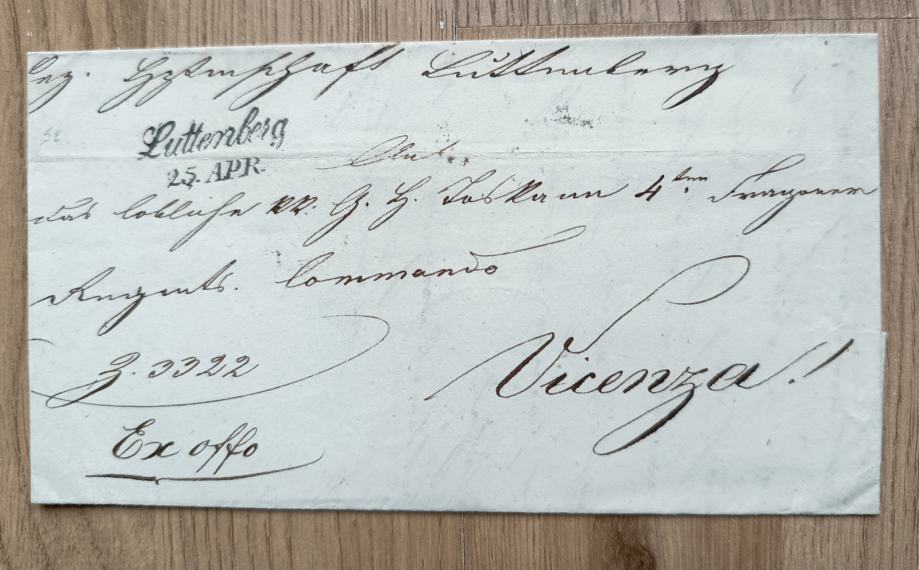 Bez. Hptmschaft Luttenberg
Luttenberg
25. APR.
An
das löbliche KK. G. H. Toskana 4ten Dragoner
Regmts. Commando
Z. 3322
Vicenza!
Ex offo